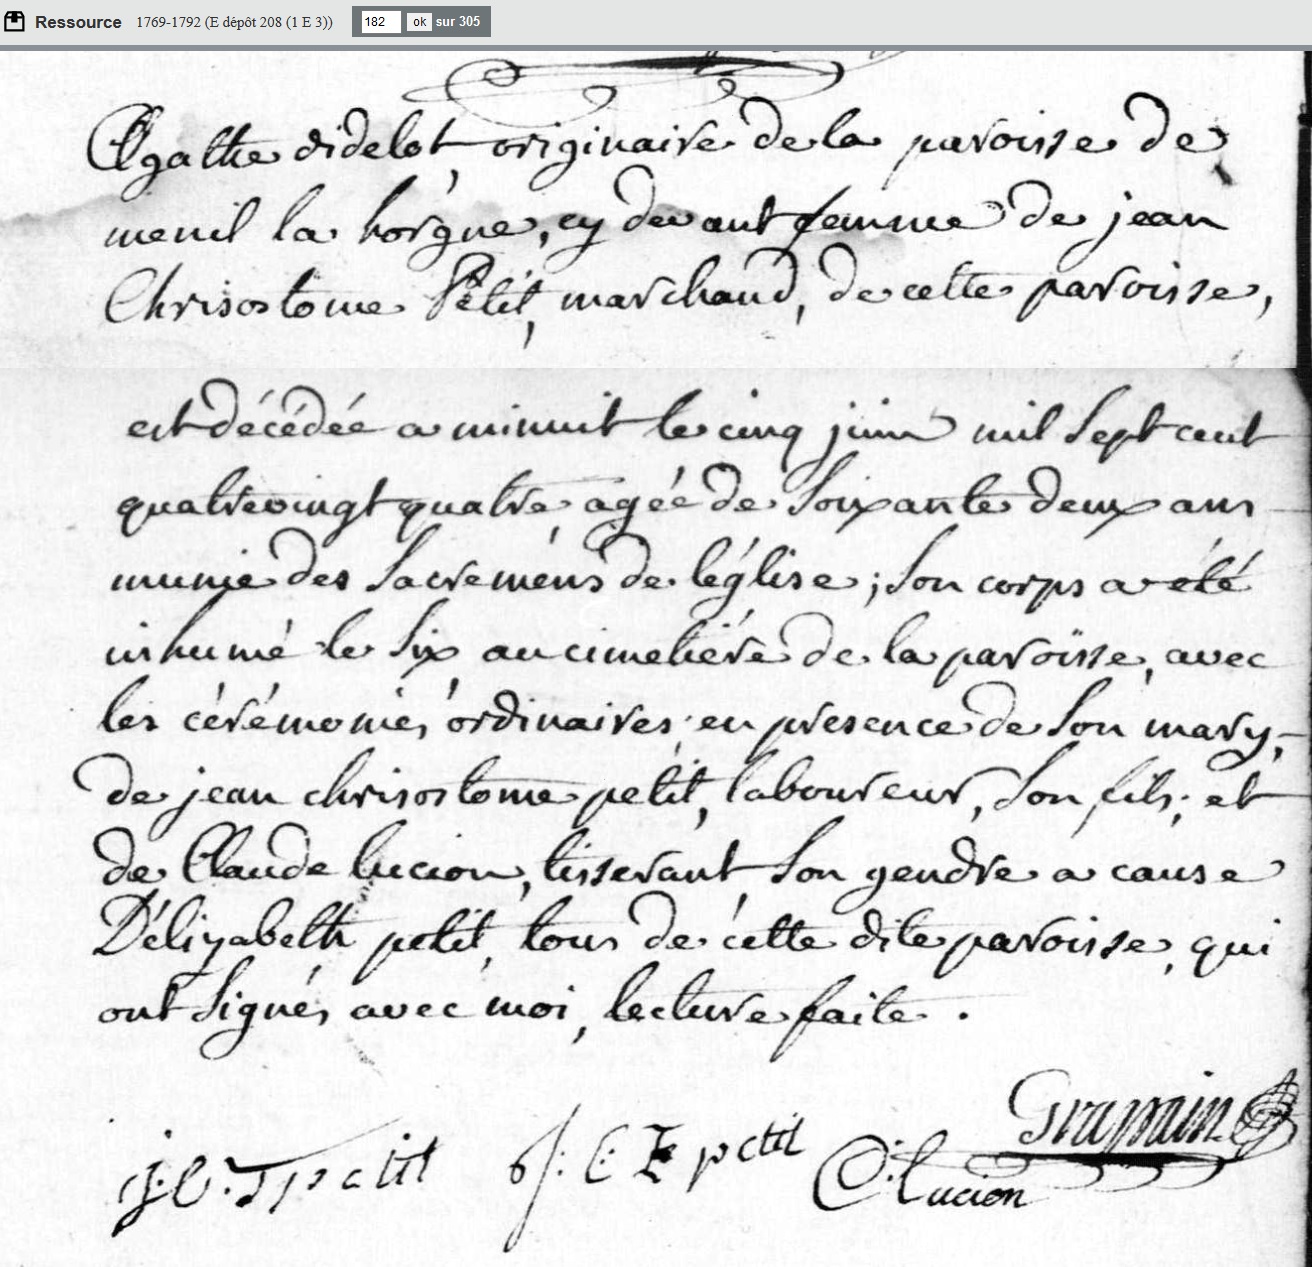 Ressource 1769-1792 (E dépôt 208 (1 E 3)) 182 ok sur 305
Agathe didelot, originaire de la paroisse de
menil la horgne, cy devant femme de jean
Chrisostome Petit, marchand, de cette paroisse,
est décédée a minuit le cinq juin mil sept cent
quatrevingt quatre, agée de soixante deux ans
munie des sacremens de l'église; son corps a été
inhumé le six au cimetiére de la paroisse, avec
les cérémonies ordinaires; en presence de son mary,
de jean chrisostome petit, laboureur, son fils; et
de Claude lucion, tisserant son gendre a cause
D'élizabeth petit, tous de cette dite paroisse, qui
ont signés avec moi, lecture faite.
j.C. petit j. C. petit C. lucion